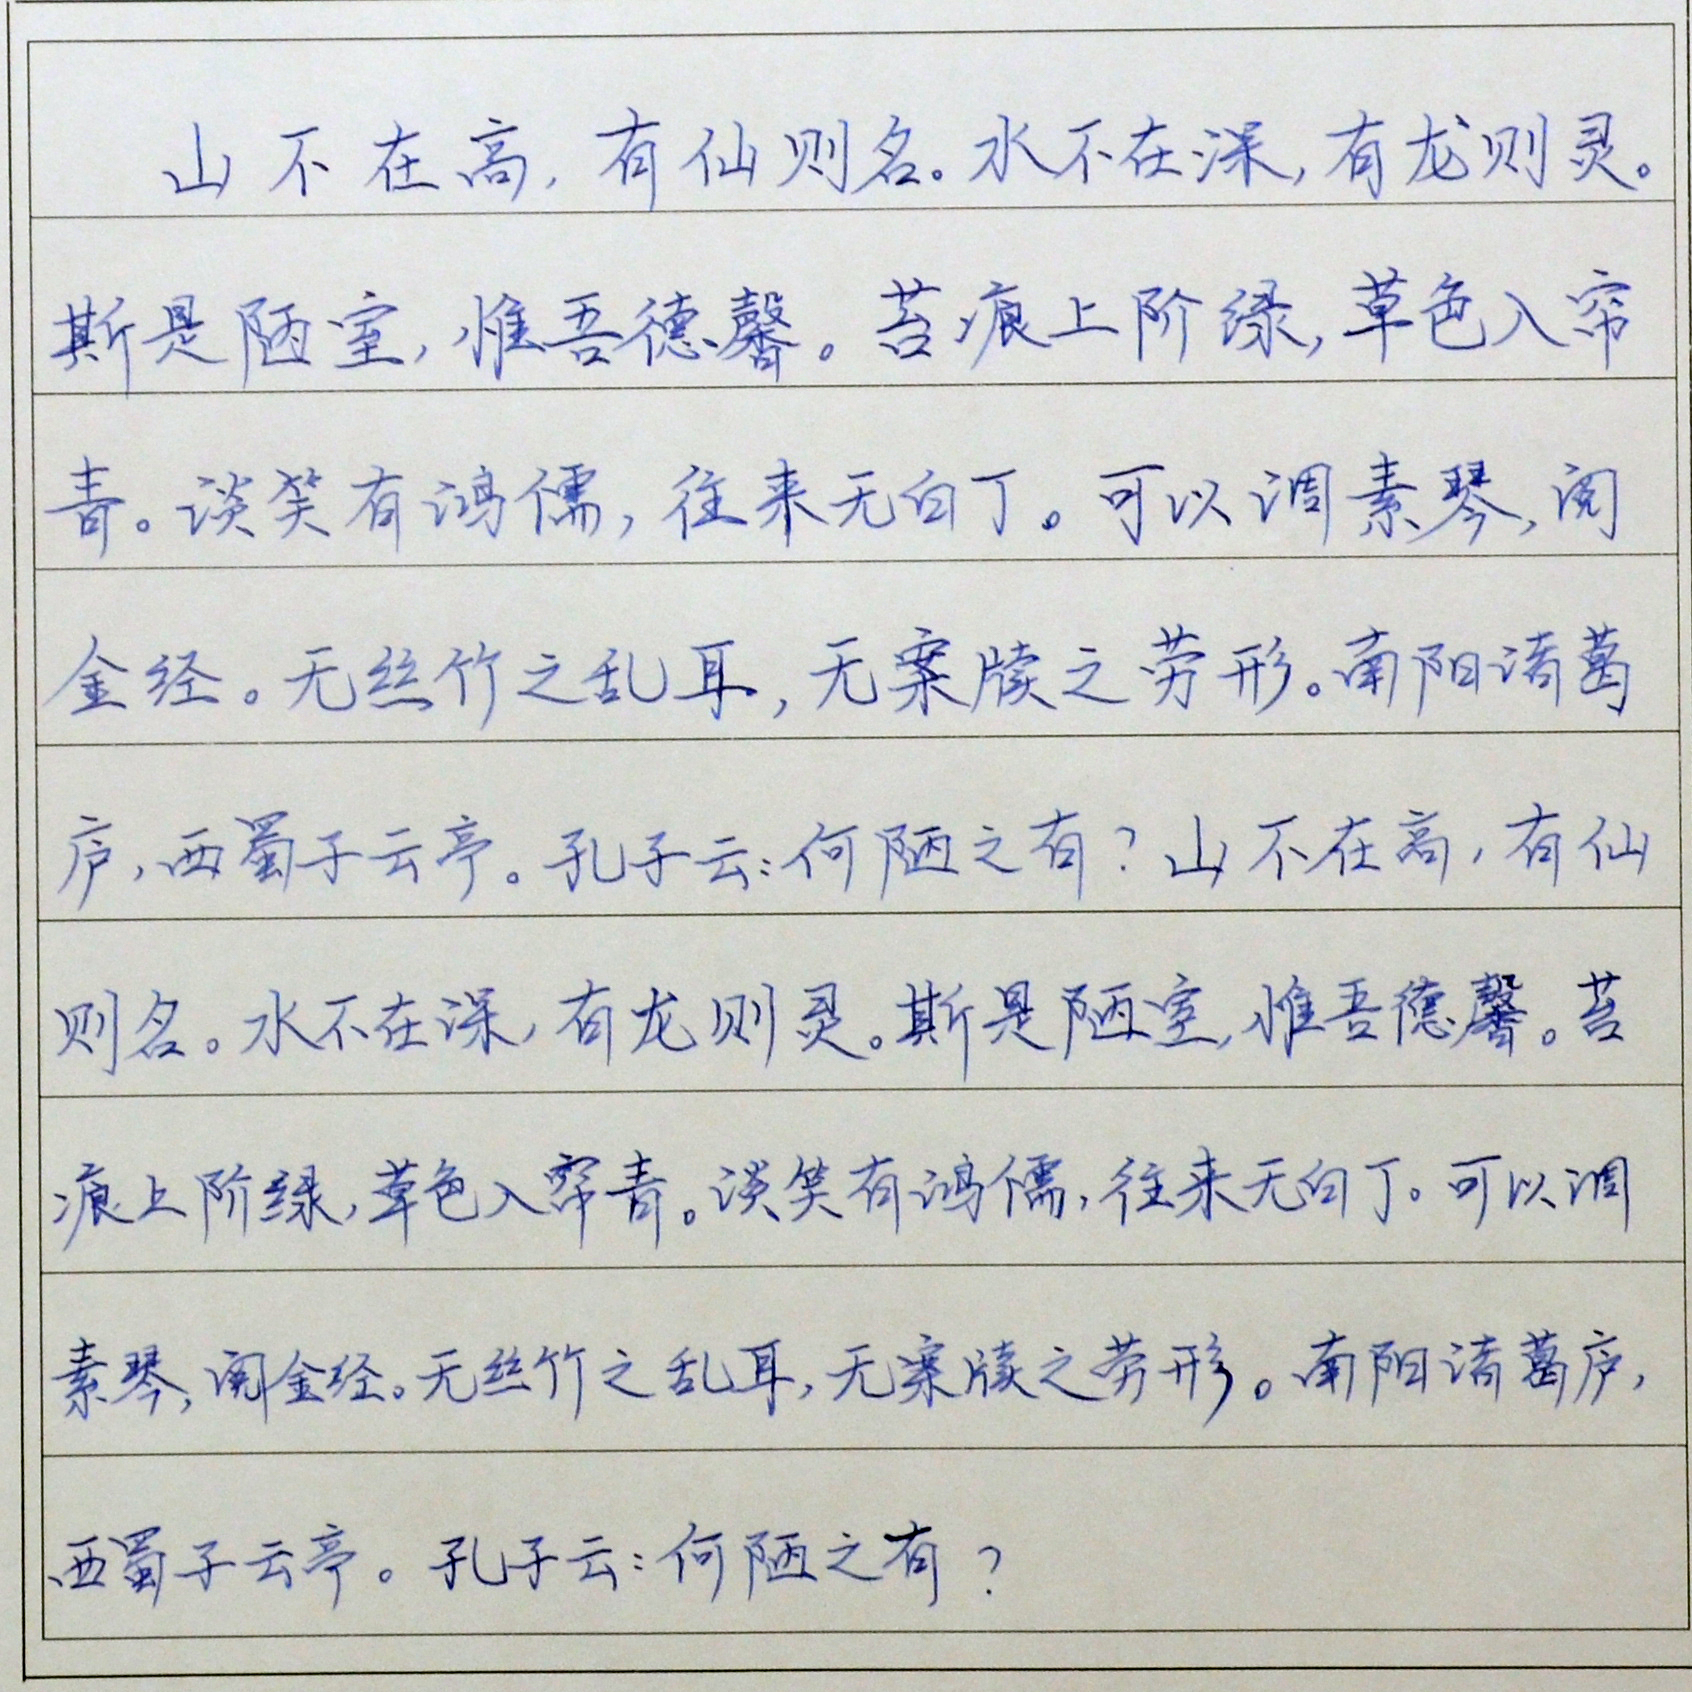 山不在高,有仙则名。水不在深,有龙则灵。
斯是陋室,惟吾德馨。苔痕上阶绿,草色入帘
青。谈笑有鸿儒,往来无白丁。可以调素琴,阅
金经。无丝竹之乱耳,无案牍之劳形。南阳诸葛
庐,西蜀子云亭。孔子云:何陋之有?山不在高,有仙
则名。水不在深,有龙则灵。斯是陋室,惟吾德馨。苔
痕上阶绿,草色入帘青。谈笑有鸿儒,往来无白丁。可以调
素琴,阅金经。无丝竹之乱耳,无案牍之劳形。南阳诸葛庐,
西蜀子云亭。孔子云:何陋之有?